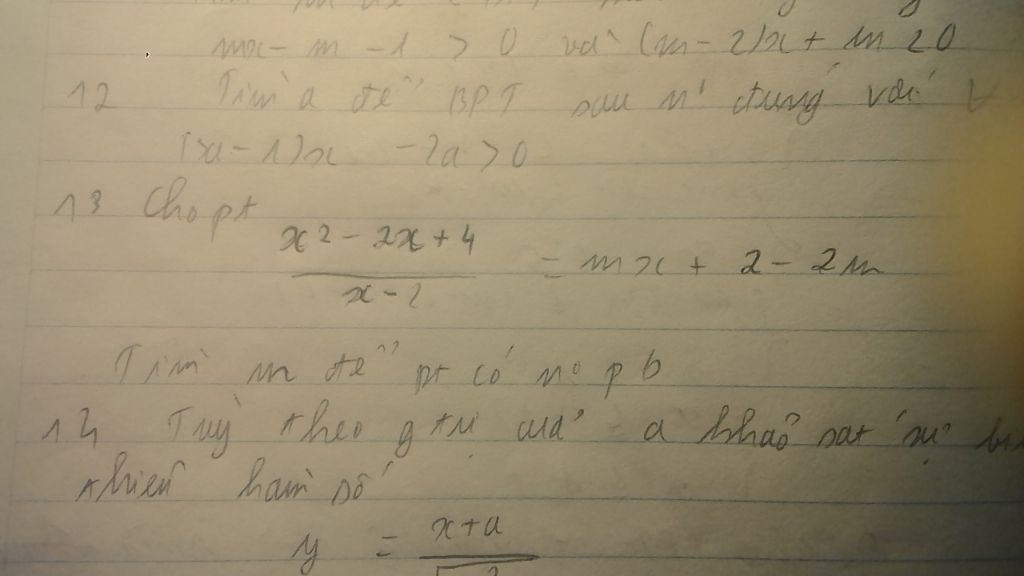 mx - m - 1 > 0 và (m - 2)x + m ≥ 0
12 Tìm a để BPT sau n° đúng với ∀
(a - 1)x - 2a > 0
13 Cho pt
x2 - 2x + 4
= mx + 2 - 2m
x - 2
Tìm m để pt có n° p b
14 Tuỳ theo g trị của a khảo sát sự
thiên hàm số
x + a
y =